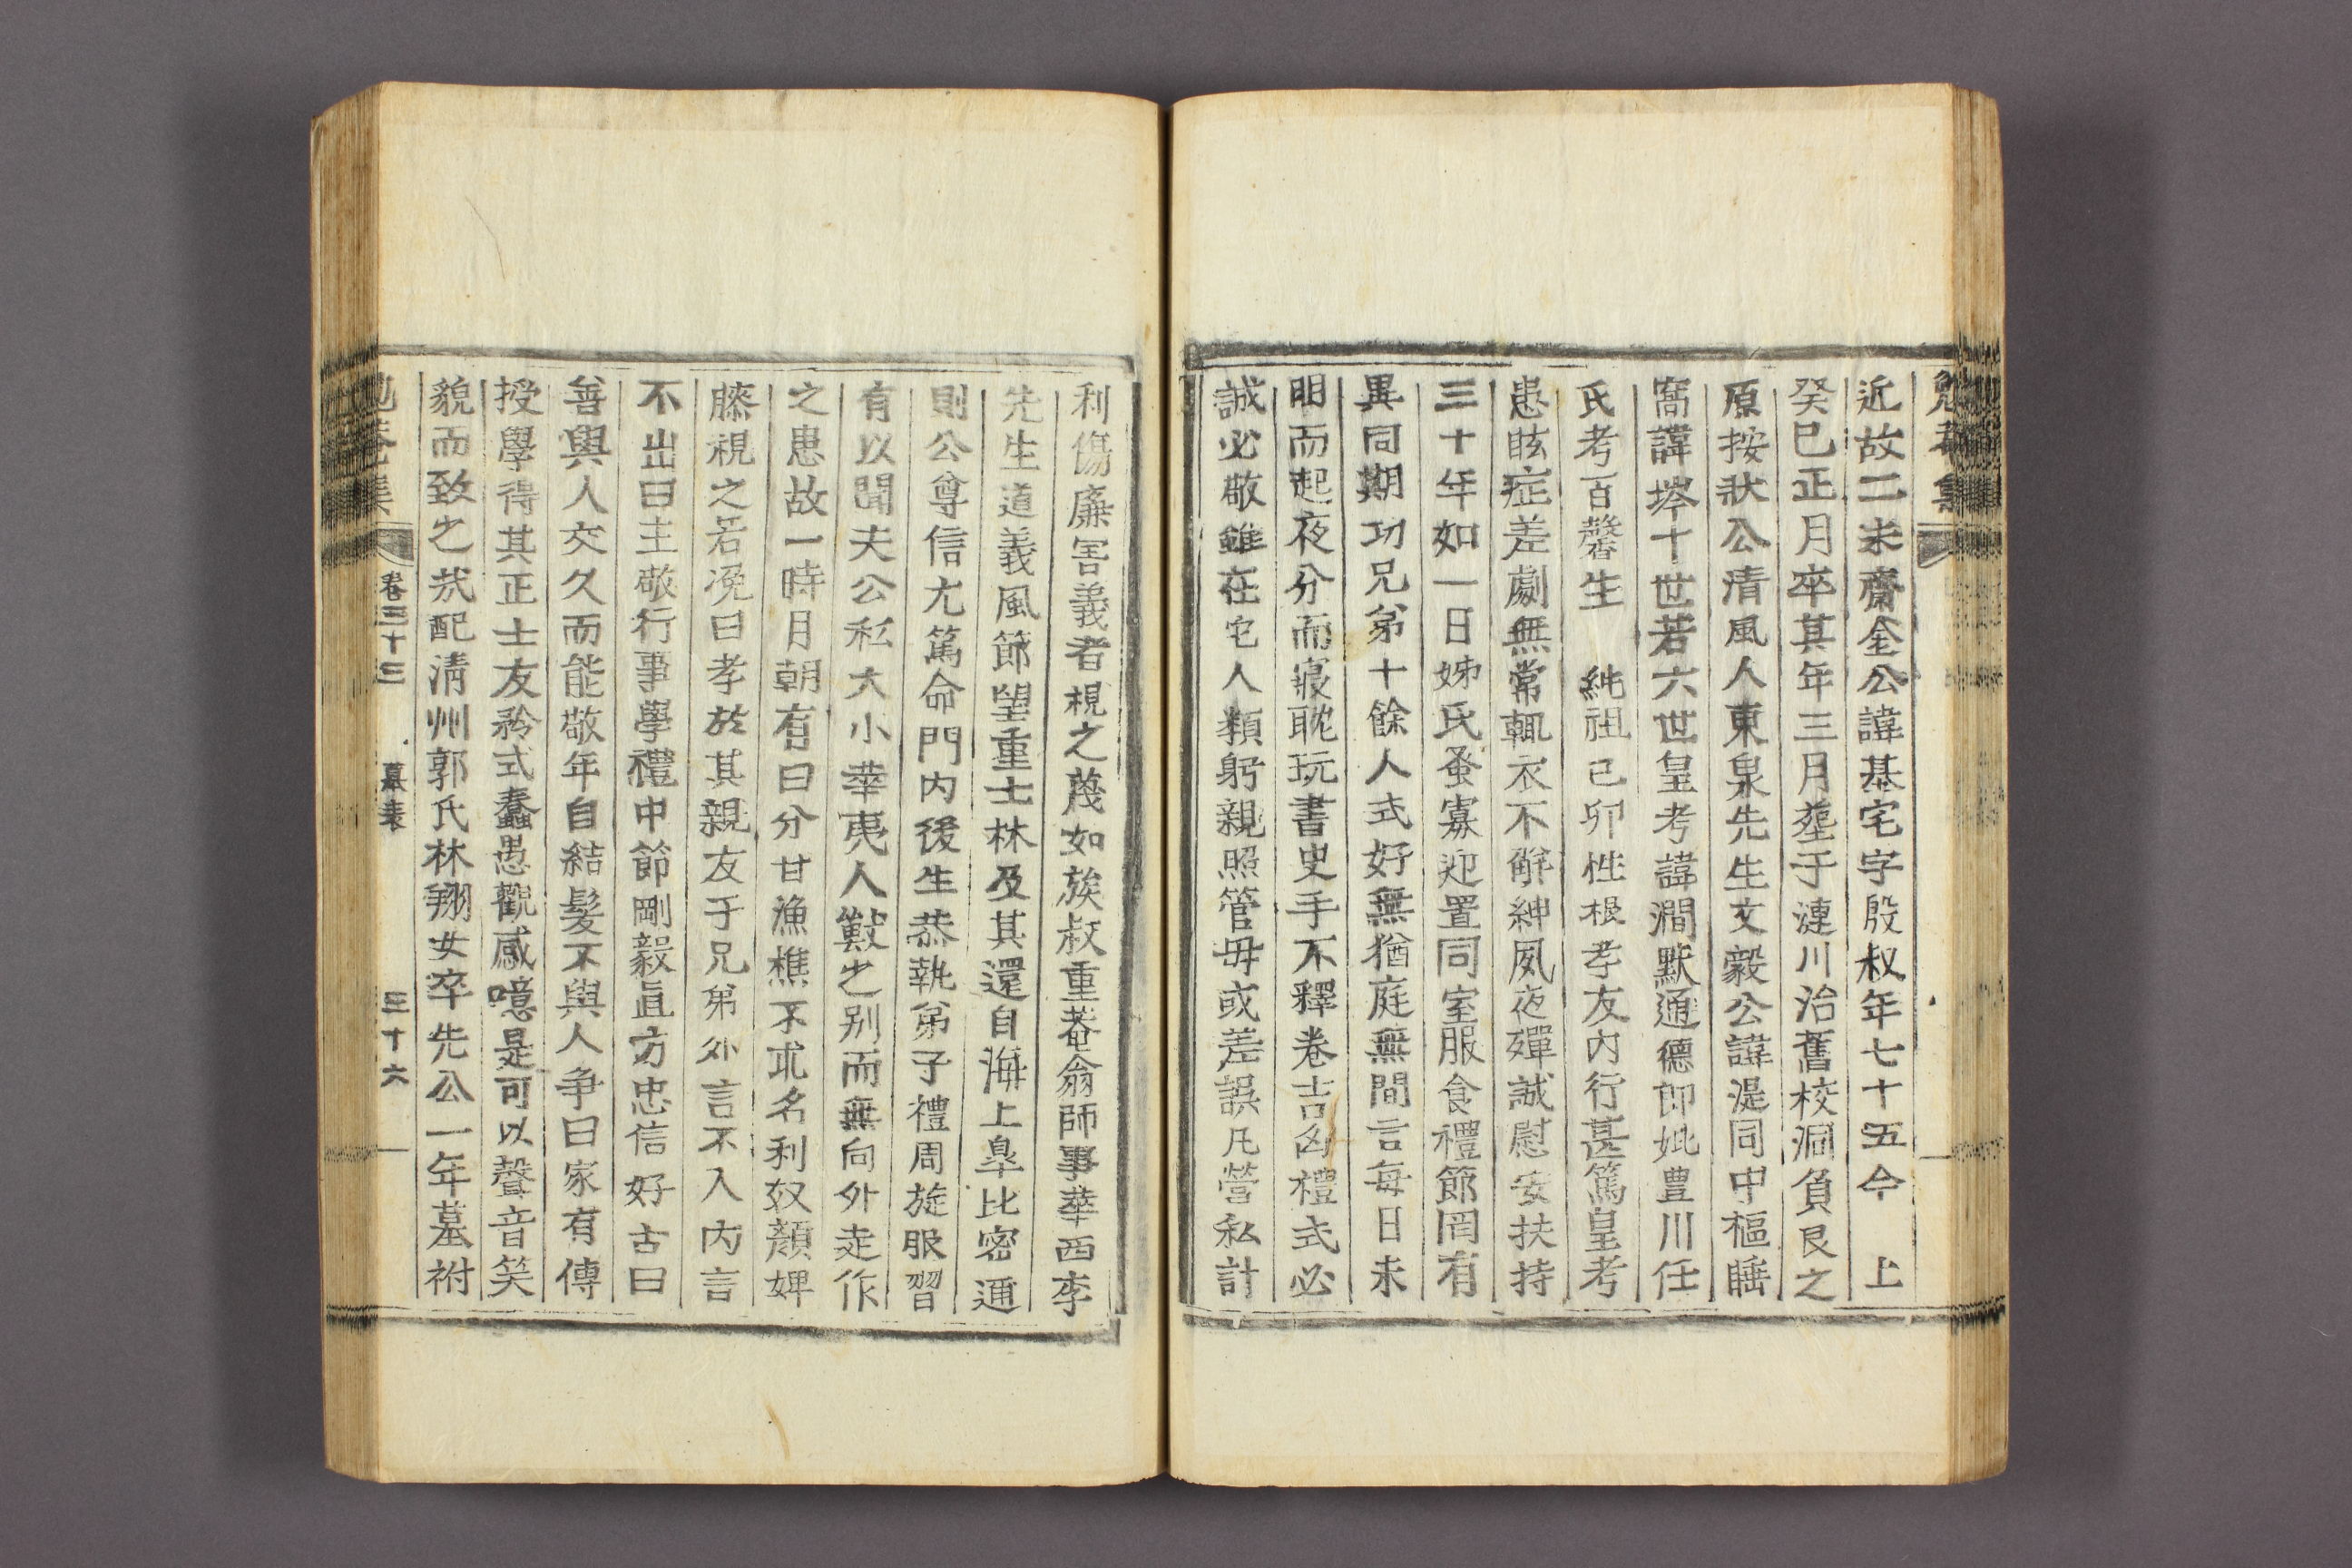 勉菴集
近故二未齋金公諱基宅字殷叔年七十五今 上
癸巳正月卒其年三月塟于漣川治舊校洞負艮之
原按狀公清風人東泉先生文毅公諱湜同中樞睡
窩諱埁十世若六世皇考諱澗默通德郞妣豊川任
氏考百馨生 純祖己卯性根孝友內行甚篤皇考
患眩症差劇無常輒衣不解紳夙夜殫誠慰安扶持
三十年如一日姊氏蚤寡迎置同室服食禮節罔有
異同期功兄弟十餘人式好無猶庭無間言每日未
明而起夜分而寢耽玩書史手不釋卷吉凶禮式必
誠必敬雖在宅人類躬親照管毋或差誤凡營私計
利傷廉害義者視之蔑如族叔重菴翁師事華西李
先生道義風節望重士林及其還自海上臯比密邇
則公尊信尤篤命門內後生恭執弟子禮周旋服習
有以聞夫公私大小華夷人獸之别而無向外走作
之患故一時月朝有曰分甘漁樵不求名利奴顏婢
膝視之若凂曰孝於其親友于兄弟外言不入內言
不出曰主敬行事學禮中節剛毅直方忠信好古曰
善與人交久而能敬年自結髮不與人爭曰家有傳
授學得其正士友矜式蠢愚觀感噫是可以聲音笑
貌而致之㦲配清州郭氏林翔女卒先公一年墓祔
勉菴集 卷三十三 墓表 三十六